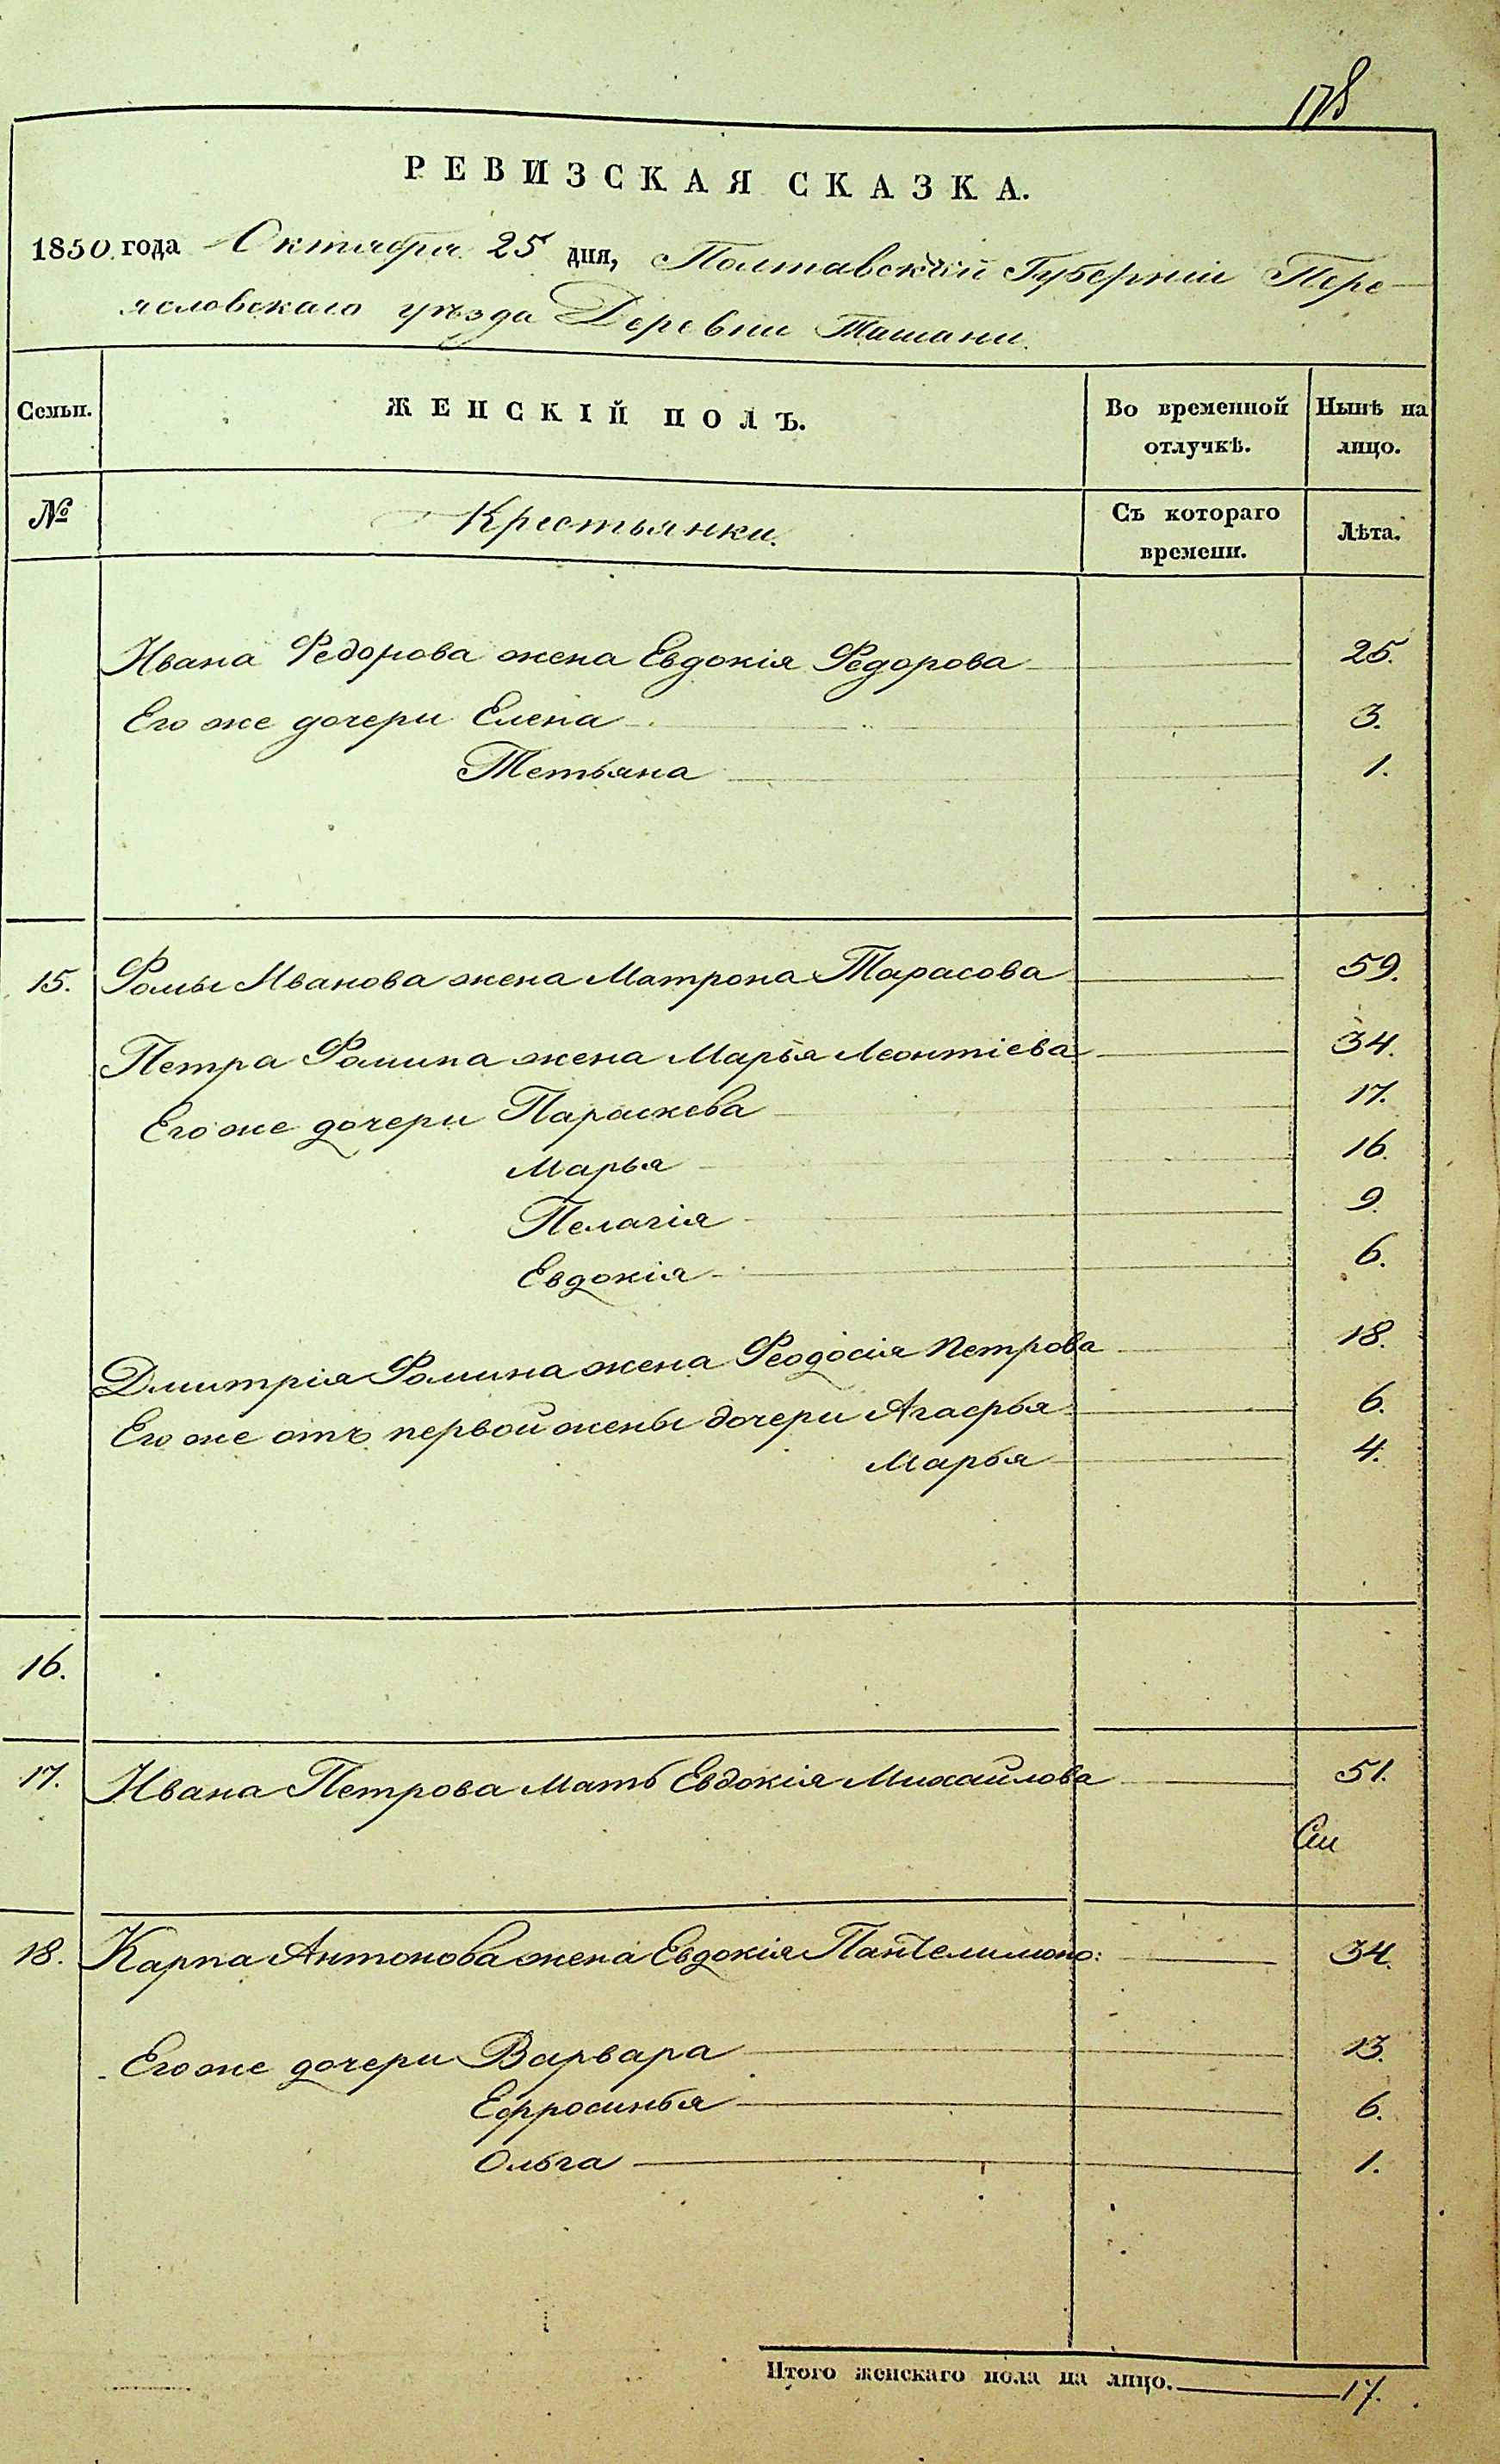 178
РЕВИЗСКАЯ СКАЗКА.
1850 года Октября 25 дня, Полтавской Губерніи Пере-
яславскаго уѣзда Деревни Ташани.
Семьи. ЖЕНСКІЙ ПОЛЪ. Во временной отлучкѣ. Нынѣ на лицо.
№ Крестьянки. Съ котораго времени. Лѣта.
Ивана Федорова жена Евдокія Федорова 25.
Его же дочери Елена 3.
Тетьяна 1.
15. Фомы Иванова жена Матрона Тарасова 59.
Петра Фомина жена Марья Леонтіева 34.
Его же дочери Параскева 17.
Марья 16.
Пелагія 9.
Евдокія 6.
Дмитрія Фомина жена Феодосія Петрова 18.
Его же отъ первой жены дочери Агафья 6.
Марья 4.
16.
17. Ивана Петрова Мать Евдокія Михайлова 51.
18. Карпа Антонова жена Евдокія Пантелимоно: 34.
Его же дочери Варвара 13.
Ефросинья 6.
Ольга 1.
Итого женскаго пола на лицо. 17.